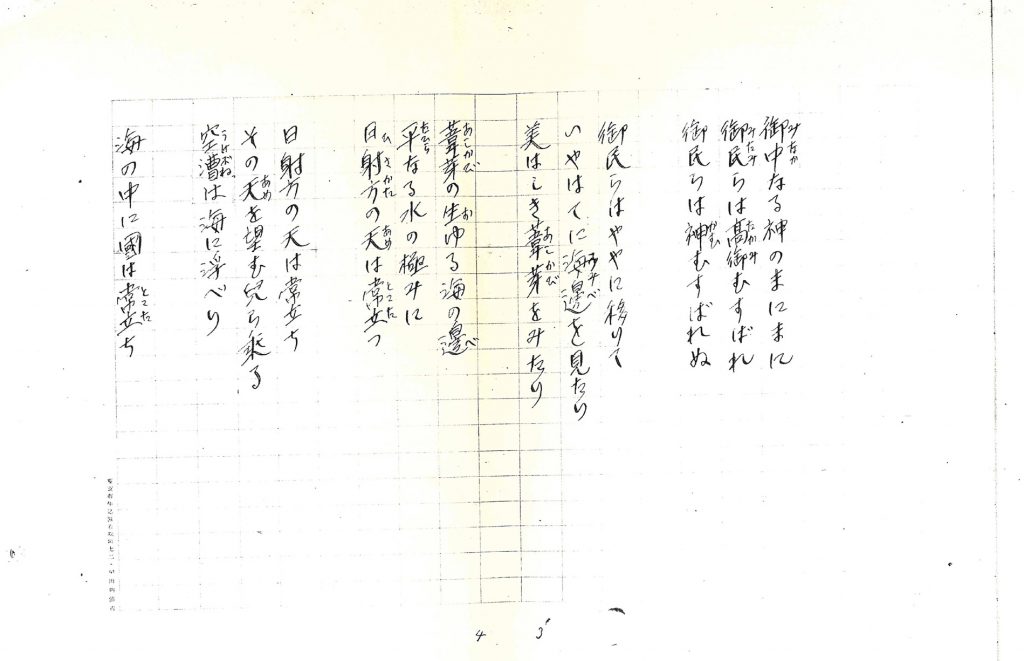 御中なる神のまにまに
御民らは高御むすばれ
御民らは神むすばれぬ
御民らはややに移りて
いやはてに海邊を見たり
美はしき葦芽をみたり
葦芽の生ゆる海の邊
平なる水の極みに
日射方の天は常立つ
日射方の天は常立ち
その天を望む兒ら乘る
空漕は海に浮べり
海の中に國は常立ち
4 3